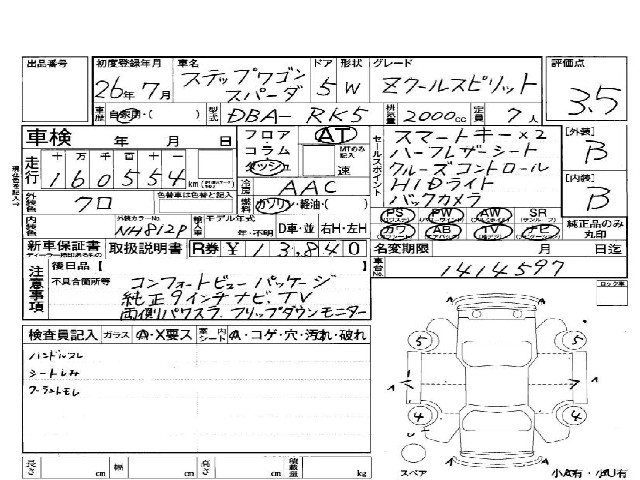 出品番号
初度登録年月 車名 ドア 形状 グレード 評価点
26年 7月 ステップワゴン スパーダ 5 W Zクールスピリット 3.5
車歴 自家用・( ) 型式 DBA- RK5 排気量 2000cc 定員 7人
車検 年 月 日
フロア コラム ダッシュ AT MTのみ記入 速
セールスポイント
スマートキー×2
ハーフレザーシート
クルーズコントロール
HIDライト
バックカメラ
[外装] B
[内装] B
純正品のみ丸印
走行 十 万 千 百 十 一
160554 km
冷房 AAC
外装色 クロ 色替車は色替と記入
燃料 ガソリン・軽油・( )
PS PW AW SR
カワ AB TV ナビ
内装色 カラーNo NH812P 輸入車 モデル年式 年・不明 D車・並 右H・左H
新車保証書 取扱説明書 R券 ¥ 13,840 名変期限 月 日迄
注意事項
後日品 [
不具合箇所等
コンフォートビューパッケージ
純正9インチナビ、TV
両側パワスラ、フリップダウンモニター
車台No. 1414597
ロック車
検査員記入 ガラス A・X要ス 室内シート A・コゲ・穴・汚れ・破れ
ハンドルスレ
シートしみ
5 5
7
4 4
スペア
小A有・小U有
長さ cm 幅 cm 高さ cm 積載量 kg